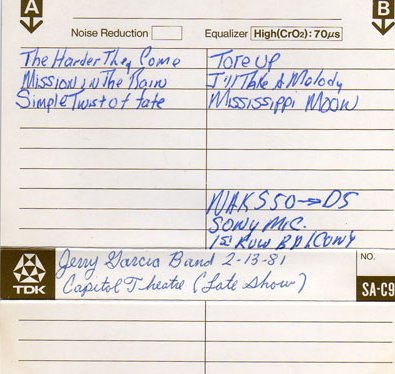 A
B
Noise Reduction
Equalizer High(CrO2): 70μs
The Harder They Come
Mission in The Rain
Simple Twist of fate
Tore up
I'll Take A Melody
Mississippi Moon
NAKS50→D5
Sony Mic.
1st Row BALCONY
Jerry Garcia Band 2-13-81
Capitol Theatre (Late Show)
TDK
NO.
SA-C9